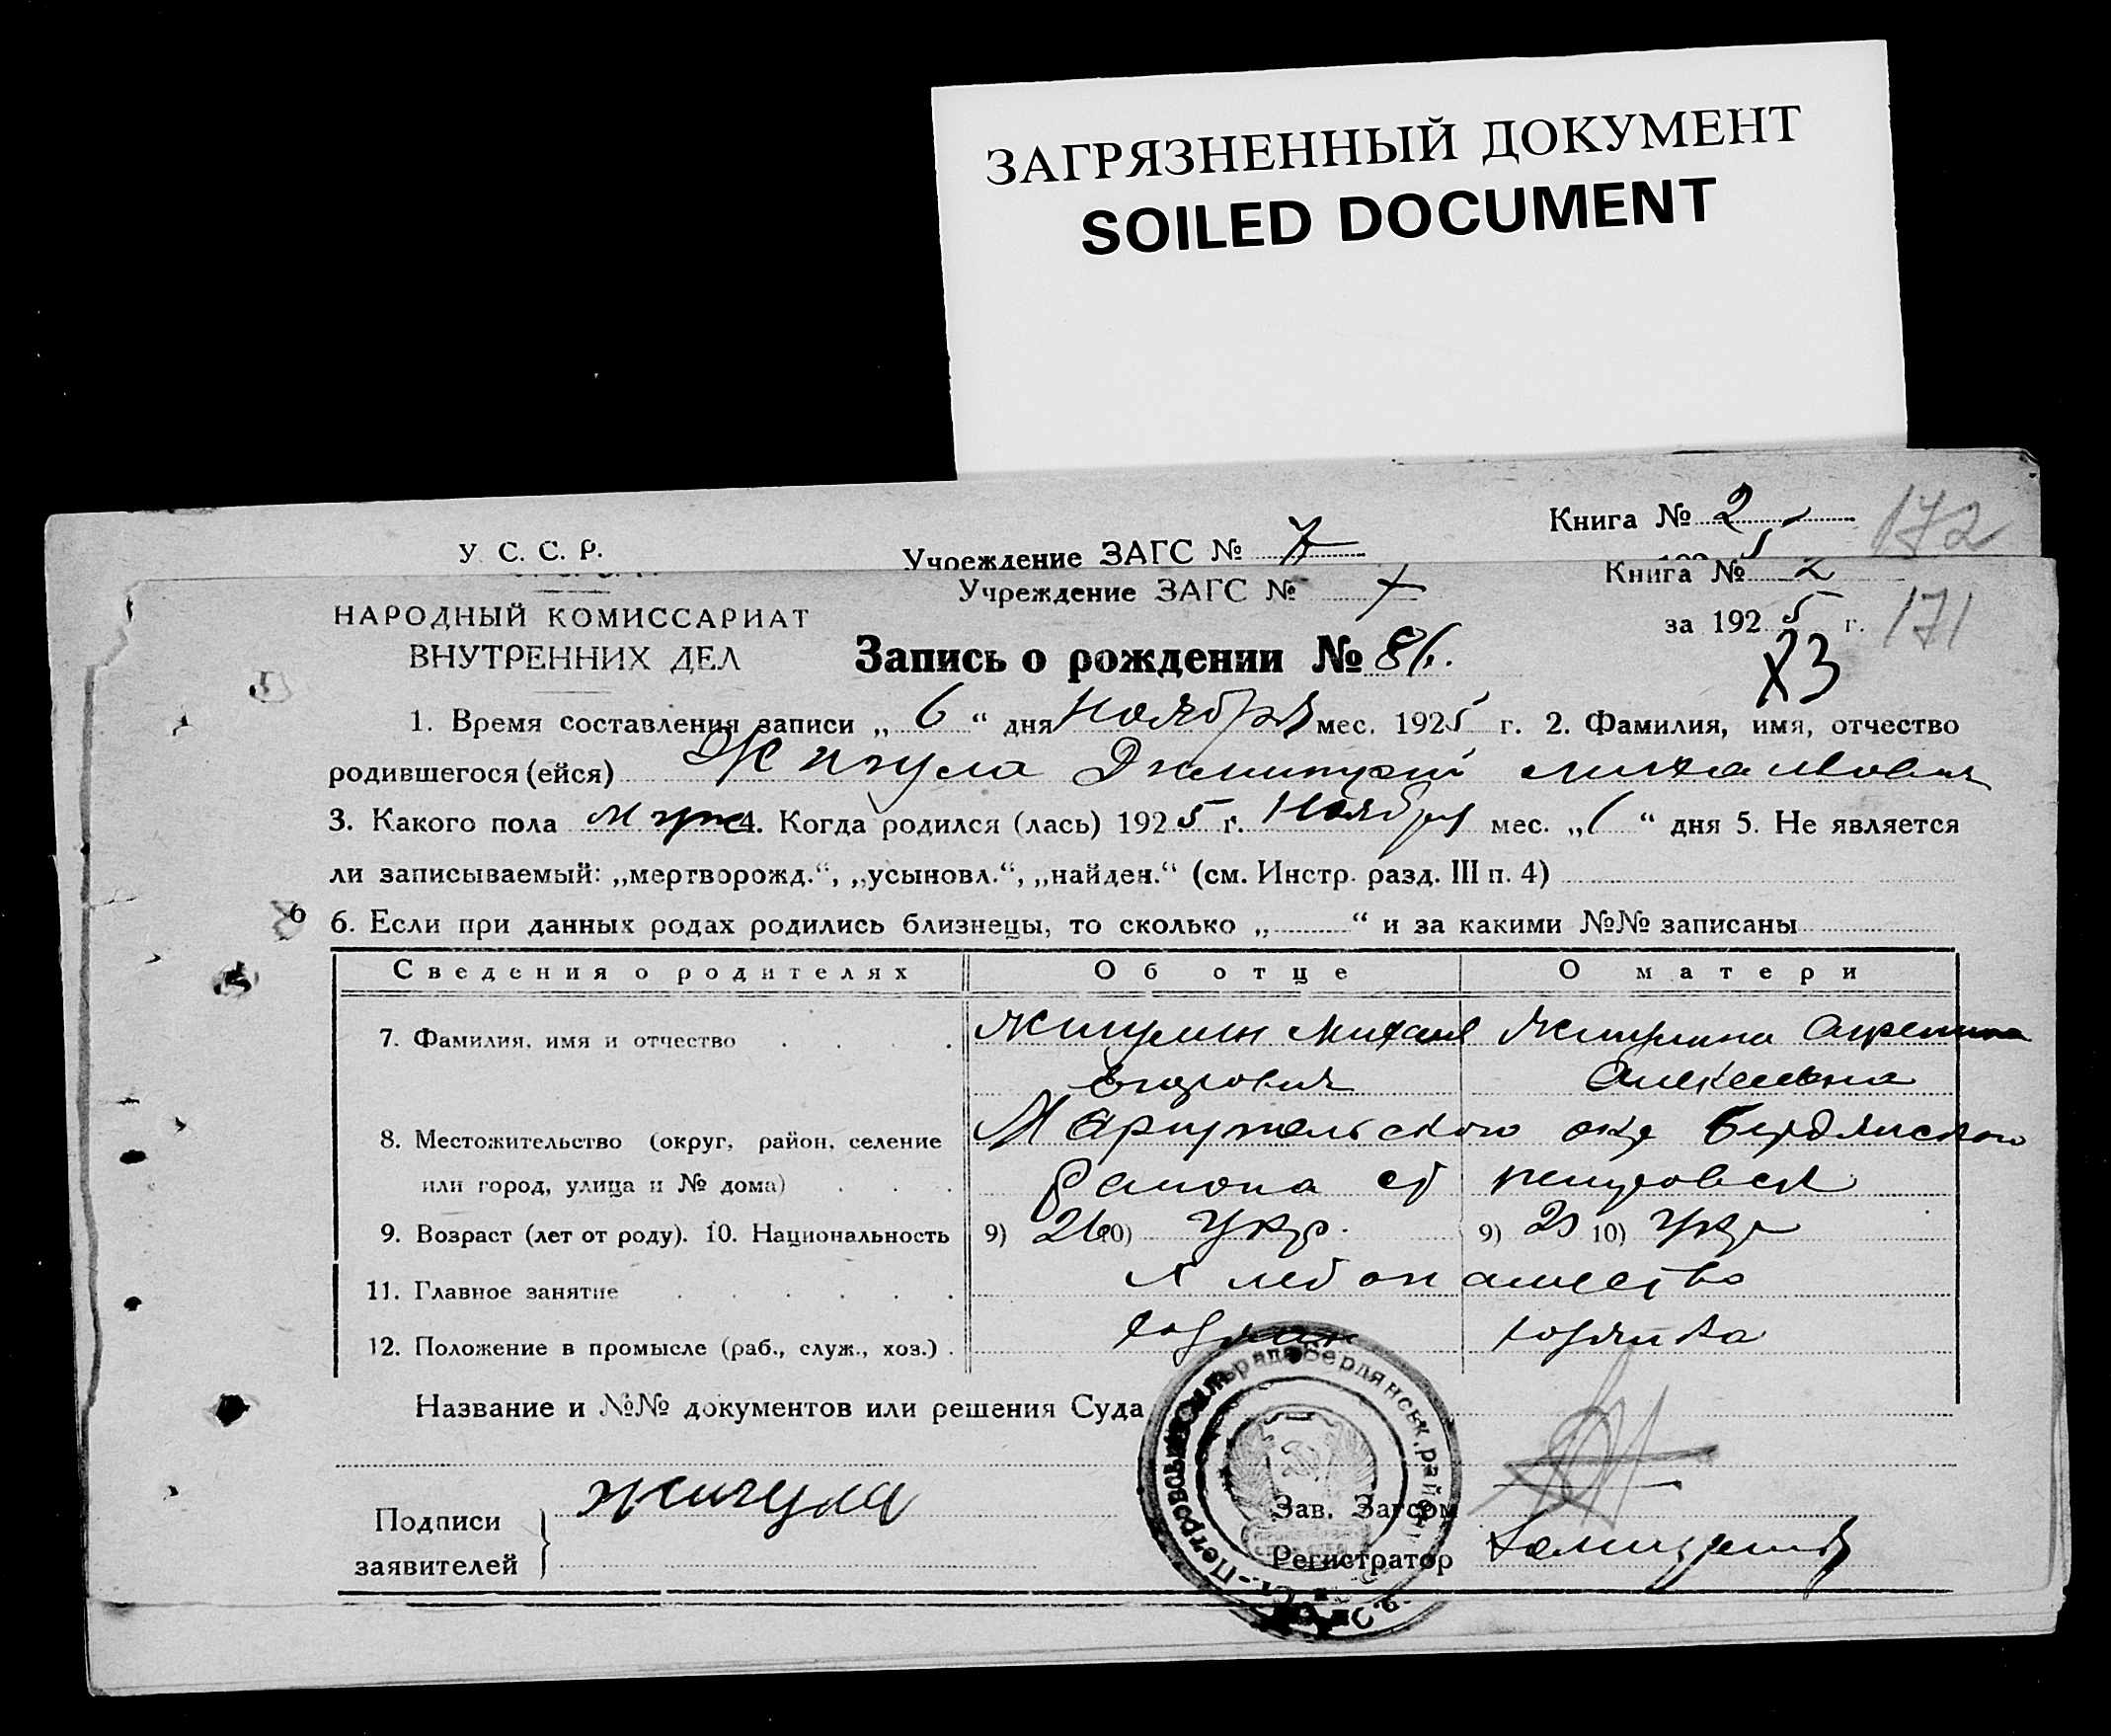 ЗАГРЯЗНЕННЫЙ ДОКУМЕНТ
SOILED DOCUMENT
Книга № 2
172
У. С. С. Р.
Учреждение ЗАГС № 7
Книга № 2
Учреждение ЗАГС № 7
за 1925 г.
171
НАРОДНЫЙ КОМИССАРИАТ
ВНУТРЕННИХ ДЕЛ
Запись о рождении № 86.
1. Время составления записи „ 6 “ дня Ноября мес. 1925 г. 2. Фамилия, имя, отчество
родившегося (ейся) Жигула Димитрий Михайлович
3. Какого пола муж 4. Когда родился (лась) 1925 г. Ноября мес. „ “ дня 5. Не является
ли записываемый: „мертворожд.“, „усыновл.“, „найден.“ (см. Инстр. разд. III п. 4)
6. Если при данных родах родились близнецы, то сколько „ “ и за какими №№ записаны
Сведения о родителях Об отце О матери
7. Фамилия, имя и отчество Михаил
Егорович Алексеевна
8. Местожительство (округ, район, селение Мариупольского окр Бердянского
или город, улица и № дома) района Петровск
9. Возраст (лет от роду). 10. Национальность 9) 26 10) Укр. 9) 10) Укр
11. Главное занятие хлебопашество
12. Положение в промысле (раб., служ., хоз.)
Название и №№ документов или решения Суда
Подписи заявителей Жигула
Зав. Загсом
Регистратор
Бердянськ. рай